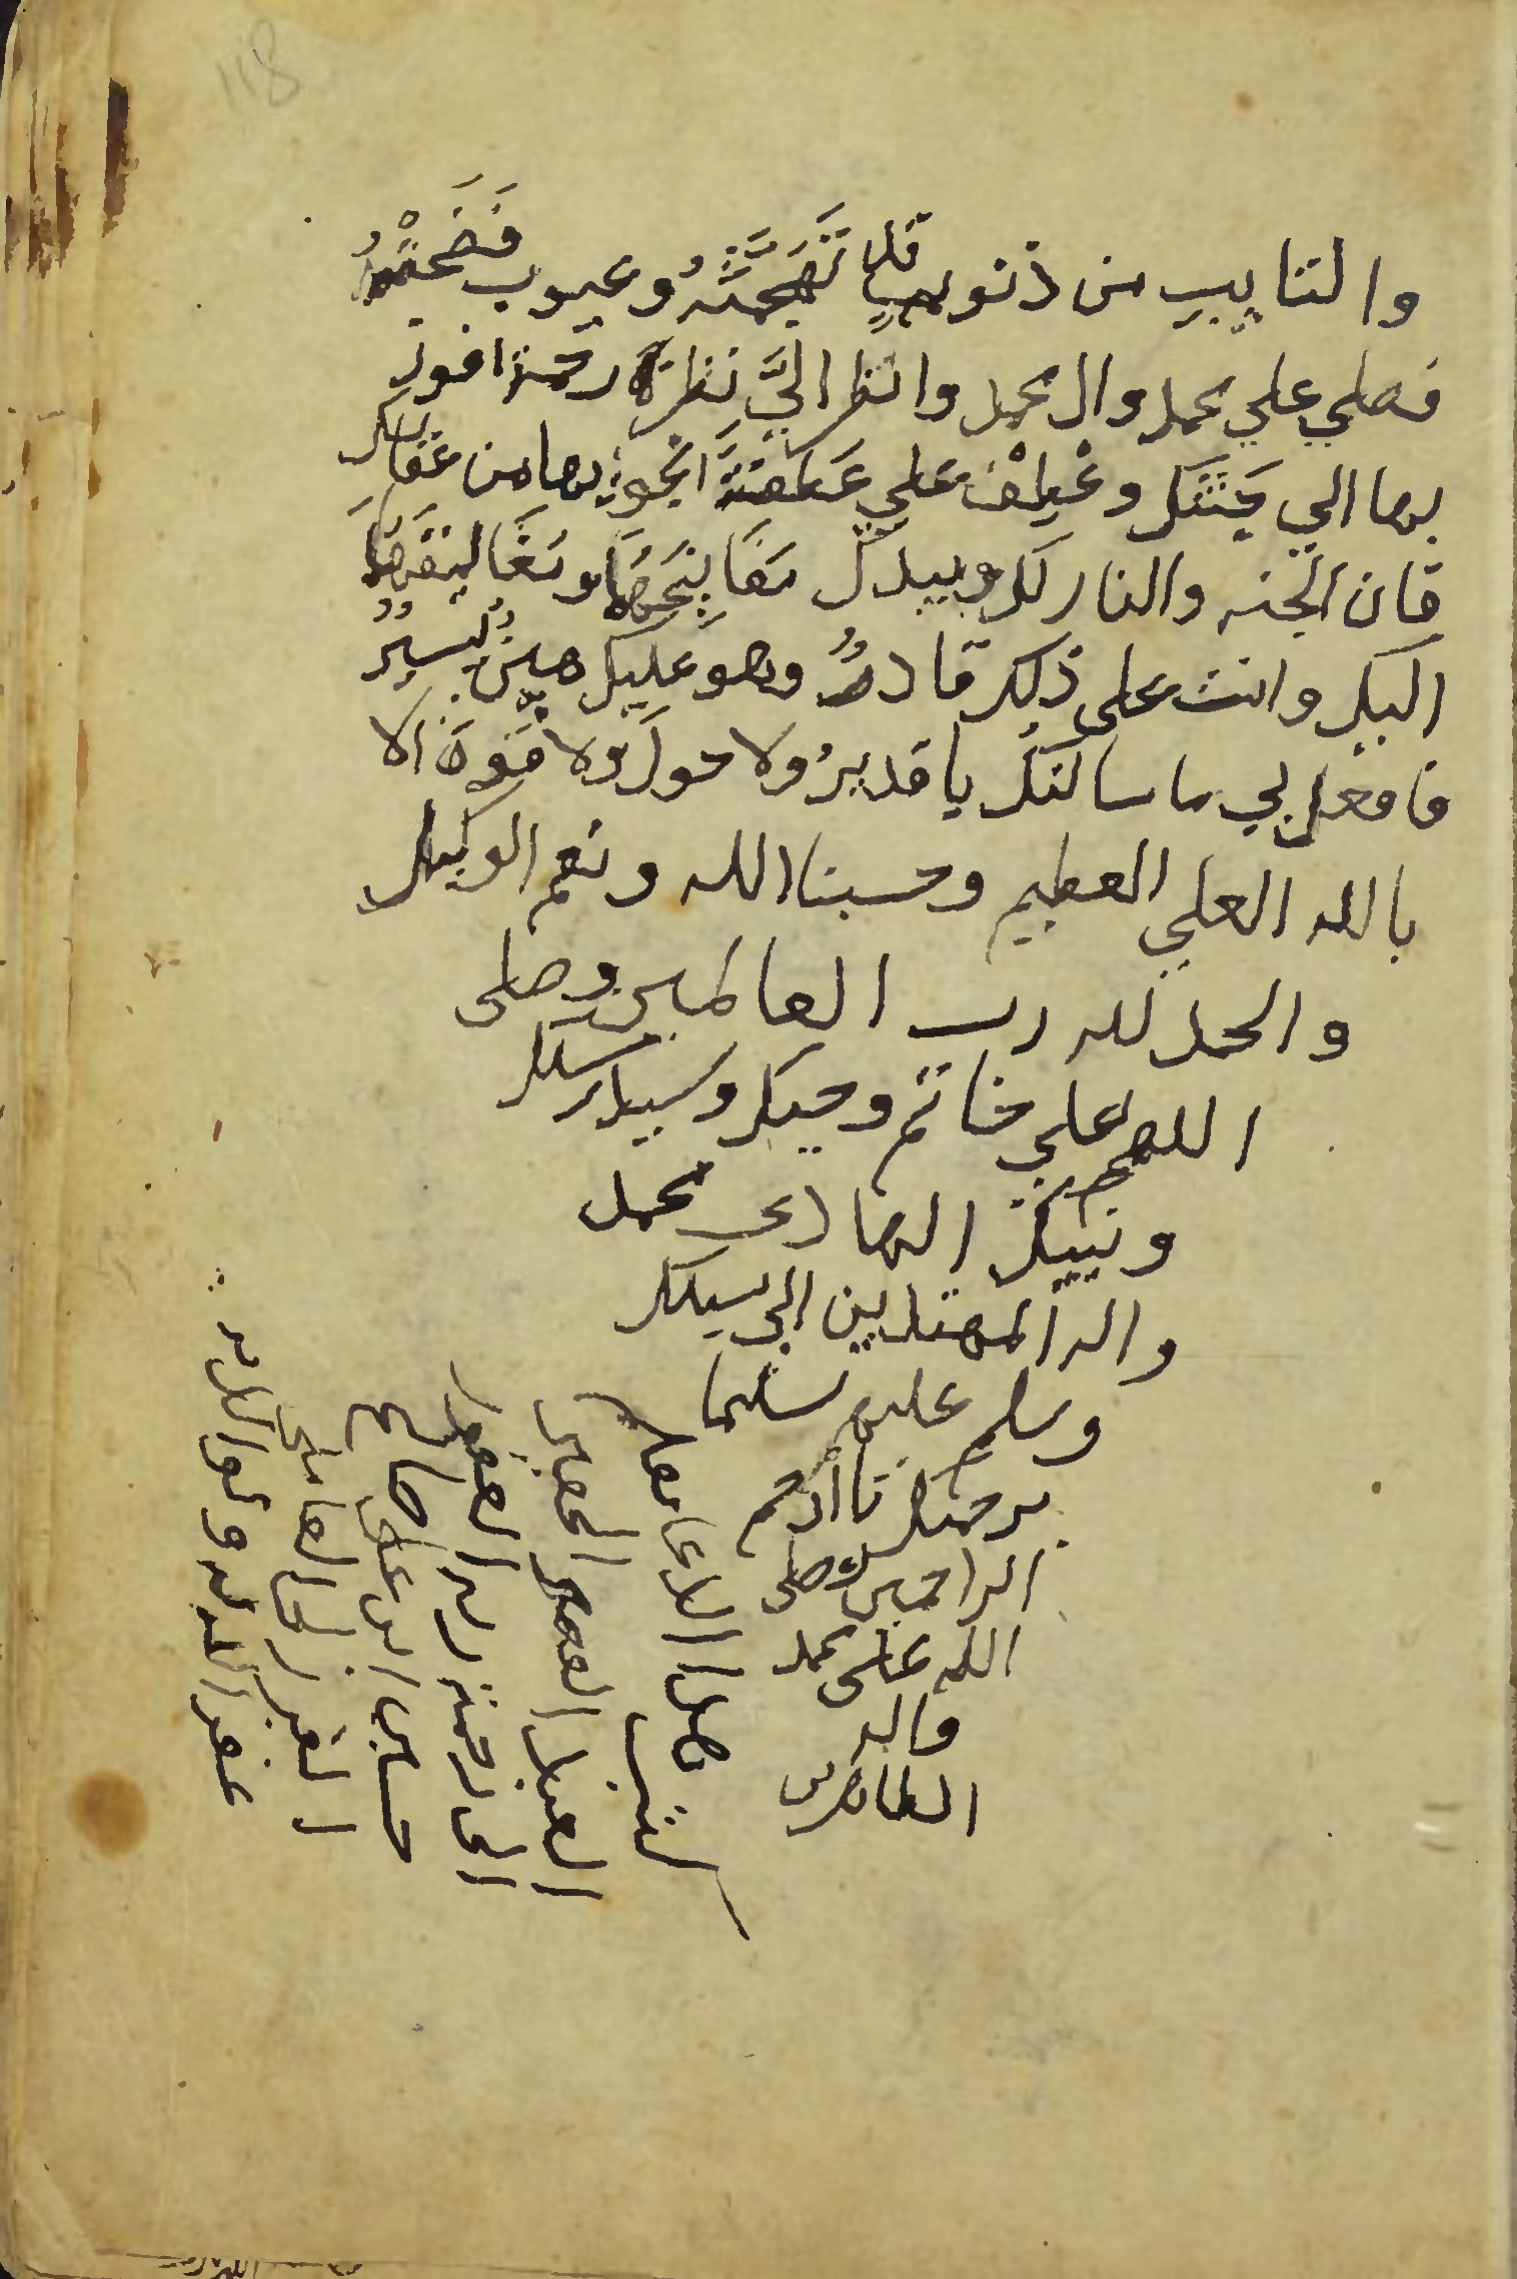 118
والتاييب من ذنوب قد تهجمته وعيوب فضحته
فصلي علي محمد وال محمد وانظر اليَّ نظرة رحمة افوز
بها الي جنتك وعْطِفْ علي عطفة انجوا بها من عقابك
فان الجنه والنار لك وبيدك مفاتحها ومغاليقها
اليك وانت على ذلك قادر وهو عليك هين يسير
فافعل بي ما سالتك يا قدير ولا حول ولا قوة الا
بالله العلي العظيم وحسبنا الله ونعم الوكيل
والحمد لله رب العالمين وصلى
اللهم علي خاتم وحيك وسيد رسلك
ونبيك الهادى محمد
واله المهتدين الى سبيلك
وسلم عليهم تسليما
برحمتك يا ارحم
الراحمين وصلى
الله على محمد
واله
الطاهرين
كتب هذا الدعا
العبد
الى رحمة ربه
حسين ابن على صالح
العاملى
غفر الله له ولوالديه